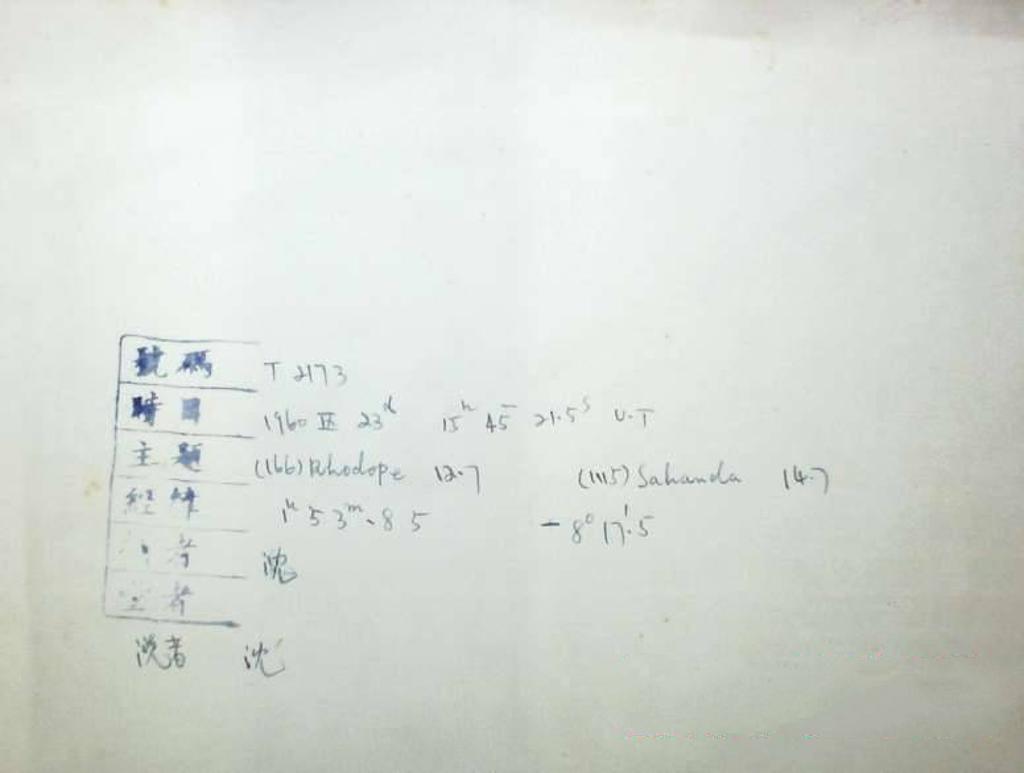 號碼 T 2173
時日 1960 Ⅲ 23ᵈ 15ʰ 45ᵐ 21.5ˢ U.T
主題 (166) Rhodope 12.7 (1115) Sahanda 14.7
經緯 1ʰ 53ᵐ.85 -8° 17'.5
者 沈
者
洗者 沈